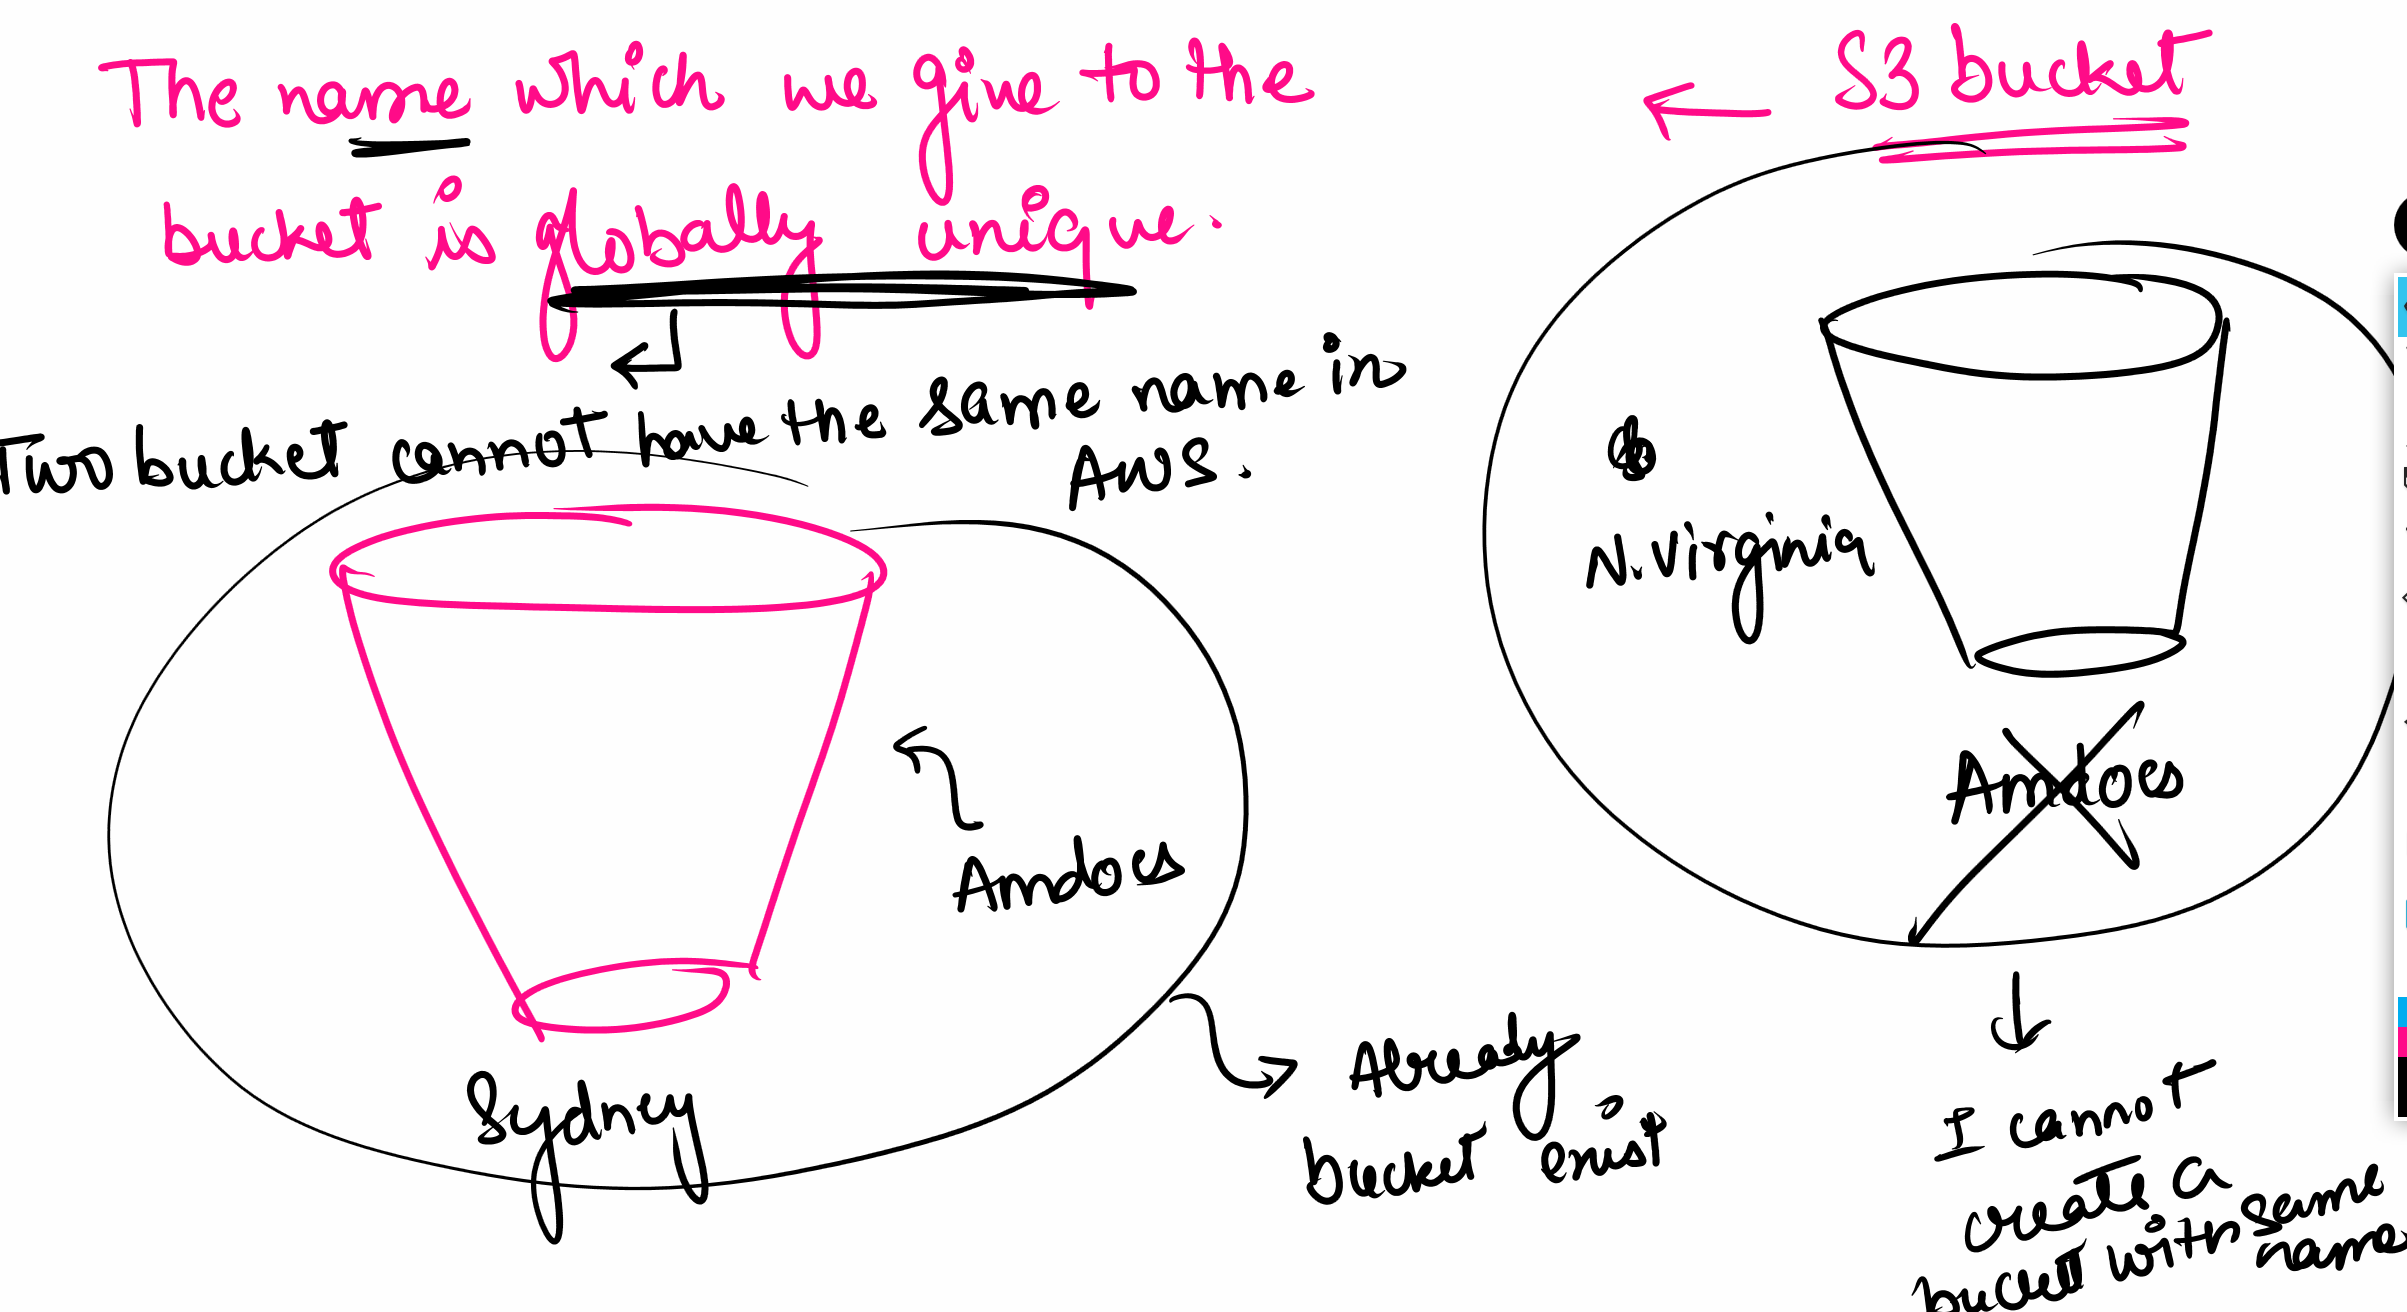 The name which we give to the
bucket is globally unique.
← S3 bucket
Two bucket cannot have the same name in
AWS.
N. Virginia
Amdocs
Amdocs
Sydney
Already
bucket exist
I cannot
create a
bucket with same
name